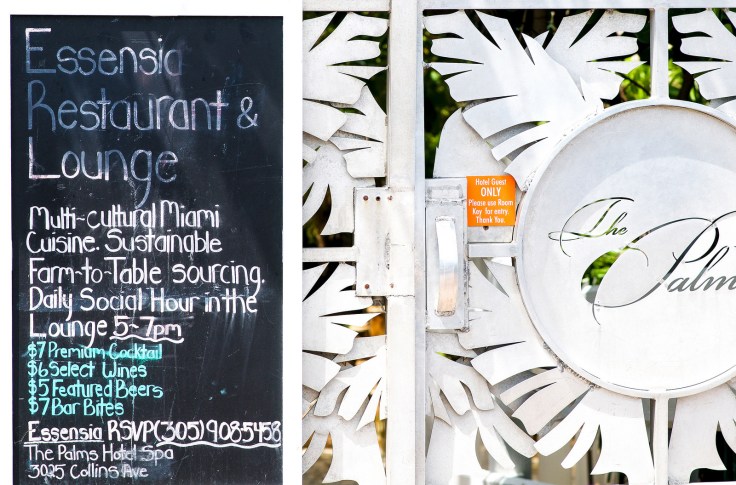 Essensia
Restaurant &
Lounge
Multi-cultural Miami
Cuisine. Sustainable
Farm-to-Table sourcing.
Daily Social Hour in the
Lounge 5-7pm
$7 Premium Cocktail
$6 Select Wines
$5 Featured Beers
$7 Bar Bites
Essensia RSVP (305) 9085458
The Palms Hotel Spa
3025 Collins Ave
Hotel Guest
ONLY
Please use Room
Key for entry.
Thank You.
The
Palm